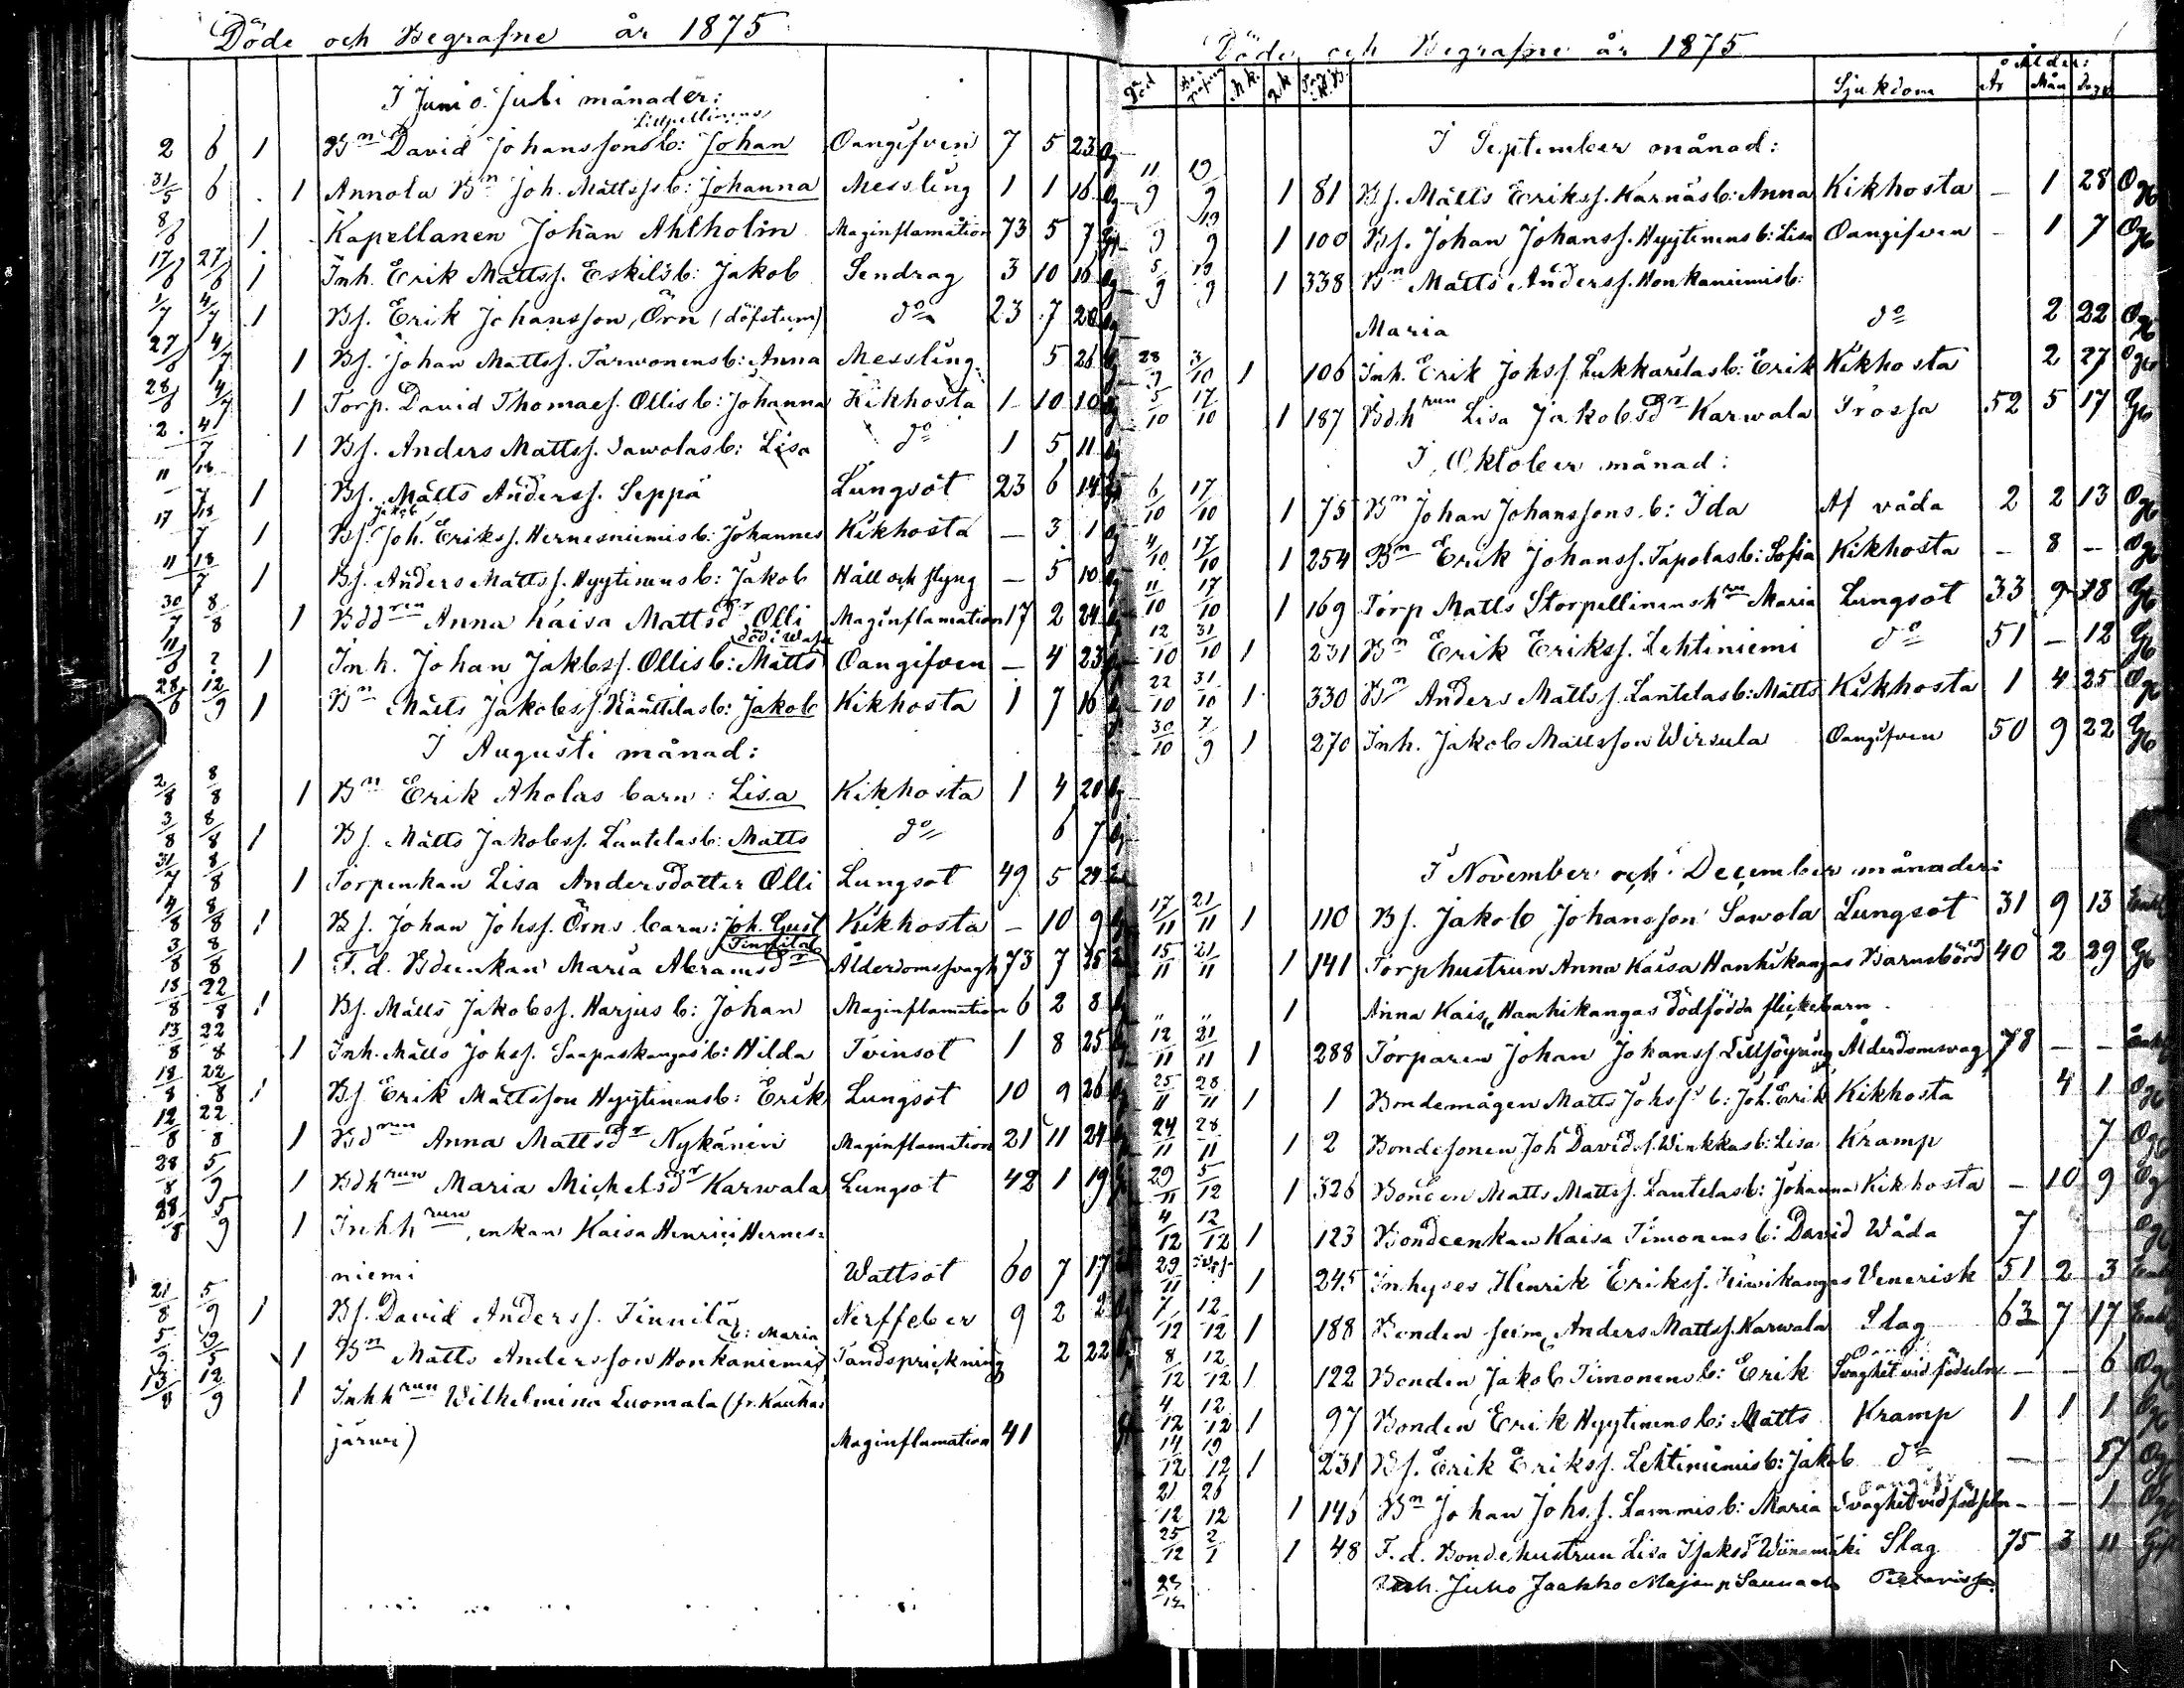 Döde och Begrafne år 1875
I Juni o. Juli månader:
Lillpellinens
2 6 1 Bn David Johanssons b: Johan Oangifven 7 5 23 Og
31/5 6 1 Annola Bn Joh. Mattss b: Johanna Messling 1 1 16 Og
8/6 1 Kapellanen Johan Ahlholm Maginflamation 73 5 7
17/6 27/6 1 Inh. Erik Mattss. Eskils b: Jakob Sendrag 3 10 16 Og
1/7 4/7 1 Bs. Erik Johansson, Örn (döfstum) do 23 7 20 Og
27/6 4/7 1 Bs. Johan Mattss. Tarwonens b: Anna Messling 5 26
28/6 4/7 1 Torp. David Thomaes. Ollis b: Johanna Kikhosta 1 10 10
2 4/7 1 Bs. Anders Mattss. Sawolas b: Lisa do 1 5 11 Og
11 18/7 1 Bs. Matts Anderss. Seppä Lungsot 23 6 14
Jakob
17 18/7 1 Bs. Joh. Erikss. Hernesniemis b: Johannes Kikhosta — 3 1 Og
11 18/7 1 Bs. Anders Mattss. Hyytinens b: Jakob Håll och styng — 5 10 Og
30/7 8/8 1 Bddren Anna Kaisa Mattsdr Olli Maginflamation 17 2 24
död i Wasa
11/6 ? 1 Inh. Johan Jakobss. Ollis b: Matts Oangifven — 4 23
28/6 12/9 1 Bn Matts Jakobss. Känttilas b: Jakob Kikhosta 1 7 16
I Augusti månad:
2/8 8/8 1 Bn Erik Aholas barn: Lisa Kikhosta 1 4 20 Og
3/8 8/8 1 Bs. Matts Jakobss. Lantelas b: Matts do 6 7 Og
31/7 8/8 1 Torpenkan Lisa Andersdotter Olli Lungsot 49 5 29
4/8 8/8 1 Bs. Johan Johss. Örns barn: Joh. Gust Kikhosta — 10 9
Tinnilä
3/8 8/8 1 F. d. Bdeenkan Maria Abramsdr Ålderdomssvagh 73 7 25
18/8 22/8 1 Bs. Matts Jakobss. Harjus b: Johan Maginflamation 6 2 8
13/8 22/8 1 Inh. Matts Johss. Saapaskangas b: Hilda Tvinsot 1 8 25
18/8 22/8 1 Bs Erik Mattsson Hyytinens b: Erik Lungsot 10 9 26
12/8 22/8 1 Bdren Anna Mattsdr Nykänen Maginflamation 21 11 24
28/8 5/9 1 Bdhrun Maria Michelsdr Karwala Lungsot 42 1 19
28/8 5/9 1 Inhhrun, enkan Kaisa Henrici Hernes=
niemi Wattsot 60 7 17
21/8 5/9 1 Bs. David Anderss. Tinnilä Nerffeber 9 2 2
b: Maria
5/9 19/5 1 Bn Matts Andersson Honkaniemis Tandsprickning 2 22
13/8 12/9 1 Inhhrun Wilhelmina Luomala (fr. Kauha=
järwi) Maginflamation 41
Döde och Begrafne år 1875
Död Begrafven M.K. Q.K. Sjukdom Ålder: År Mån Dagar
I September månad:
11/9 19/9 1 81 Bs. Matts Erikss. Karnäs b: Anna Kikhosta — 1 28 Og
9/9 19/9 1 100 Bs. Johan Johanss. Hyytinens b: Lisa Oangifven — 1 7 Og
5/9 19/9 1 338 Bn Matts Anderss. Honkaniemis b:
Maria do 2 22 Og
28/9 3/10 1 106 Inh. Erik Johss Lukkarilas b: Erik Kikhosta 2 27 Og
5/10 17/10 1 187 Bdhrun Lisa Jakobsdr Karwala Trossa 52 5 17 G
I Oktober månad:
6/10 17/10 1 75 Bn Johan Johanssons b: Ida Af våda 2 2 13 Og
4/10 17/10 1 254 Bn Erik Johanss. Tapolas b: Sofia Kikhosta — 8 — Og
11/10 17/10 1 169 Torp Matts Storpellinens hru Maria Lungsot 33 9 18 G
12/10 31/10 1 231 Bn Erik Erikss. Lehtiniemi do 51 — 12 G
22/10 31/10 1 330 Bn Anders Mattss. Lantelas b: Matts Kikhosta 1 4 25 Og
30/10 7/9 1 270 Inh. Jakob Mattsson Wirsula Oangifven 50 9 22 G
I November och December månader:
17/11 21/11 1 110 Bs. Jakob Johansson Sawola Lungsot 31 9 13 Enkl
15/11 21/11 1 141 Torphustrun Anna Kaisa Hanhikangas Barnsbörd 40 2 29 G
" " 1 Anna Kais, Hanhikangas dödfödda flickebarn
12/11 21/11 1 288 Torparen Johan Johanss Lilljöyring Ålderdomsvag 78 — —
25/11 28/11 1 1 Bondemågen Matts Johss b: Joh. Erik Kikhosta 4 1 Og
24/11 28/11 1 2 Bondesonen Joh David s. Winkkas b: Lisa Kramp 7 Og
29/11 5/12 1 326 Bonden Matts Mattss. Lantelas b: Johanna Kikhosta — 10 9 Og
4/12 12/12 1 123 Bondeenkan Kaisa Timonens b: David Wåda 7 Og
29/11 1 245 Inhyses Henrik Erikss. Kiwikangas Venerisk 51 2 3 Enkl
7/12 12/12 1 188 Bonden Anders Mattss. Karwala Slag 63 7 17 Enkl
8/12 12/12 1 122 Bonden Jakob Timonens b: Erik Svaghet vid födseln — — 6 Og
4/12 12/12 1 97 Bonden Erik Hyytinens b: Matts Kramp 1 1 1 Og
14/12 19/12 1 231 Bs. Erik Erikss. Lehtiniemis b: Jakob do — 17 Og
21/12 26/12 1 145 Bn Johan Johs.s. Lammis b: Maria Svaghet vid födseln — — 1 Og
25/12 2/1 1 48 F. d. Bondehustrun Lisa Isaksdr Wiinamäki Slag 75 3 11 Gift
23/12 Juho Jaakko